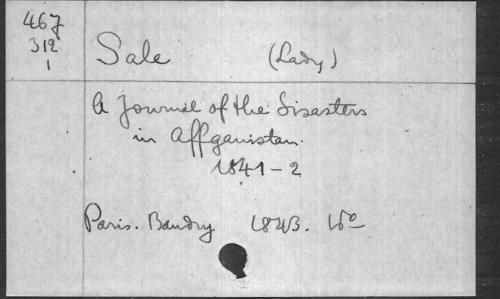 467
312
1
Sale (Lady)
A Journal of the Disasters
in Affganistan.
1841-2
Paris. Baudry 1843. 16º